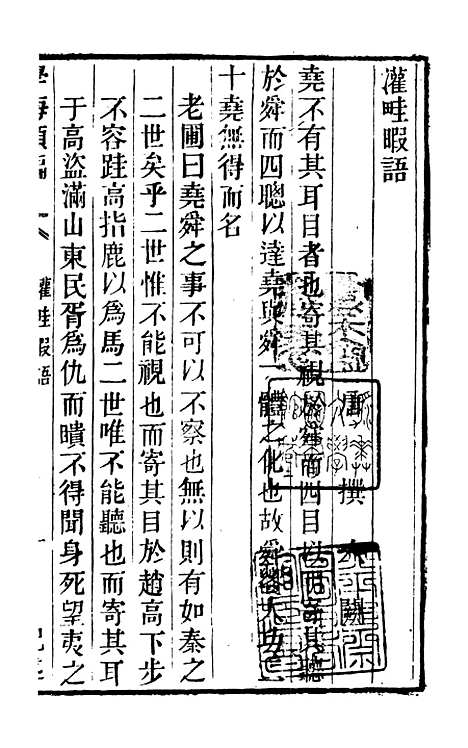 灌畦暇語
唐 撰 人 闕
堯不有其耳目者也寄其視於舜而四目以明寄其聽
於舜而四聰以達堯與舜一體之化也故舜
十堯無得而名
老圃曰堯舜之事不可以不察也無以則有如秦之
二世矣乎二世惟不能視也而寄其目於趙高下步
不容跬高指鹿以為馬二世唯不能聽也而寄其耳
于高盜滿山東民胥為仇而瞶不得聞身死望夷之
學海類編 灌畦暇語 一